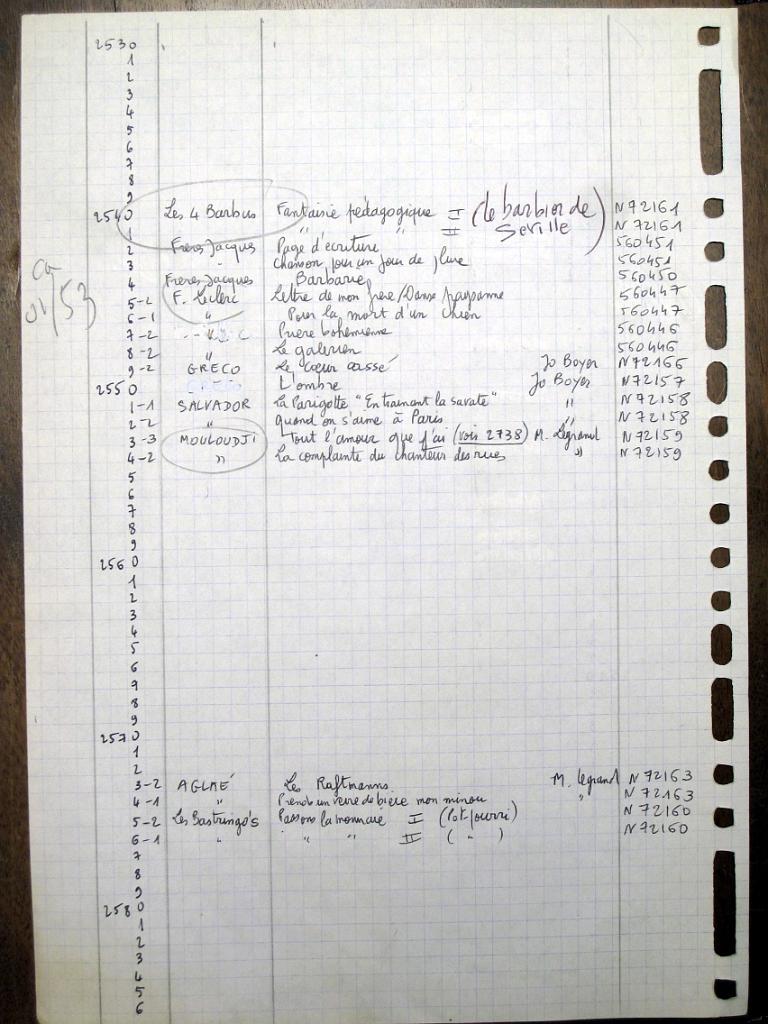 2530
1
2
3
4
5
6
7
8
9
2540 Les 4 Barbus Fantaisie pédagogique I (le barbier de Seville) N 72161
1 " " II N 72161
2 Frères Jacques Page d'écriture 560451
3 " Chanson pour un jour de pluie 560451
4 Frères Jacques Barbarie 560450
5-2 F. Leclerc Lettre de mon frère/Danse paysanne 560447
6-1 " Pour la mort d'un chien 560447
7-2 Prière bohémienne 560446
8-2 " Le galérien 560446
9-2 GRECO Le cœur cassé Jo Boyer N 72166
2550 L'ombre Jo Boyer N 72157
1-1 SALVADOR La Parigotte "En trainant la savate" " N 72158
2-2 " quand on s'aime à Paris " N 72158
3-3 MOULOUDJI Tout l'amour que j'ai (voir 2738) M. Legrand N 72159
4-2 " La complainte du chanteur des rues " N 72159
5
6
7
8
9
2560
1
2
3
4
5
6
7
8
9
2570
1
2
3-2 AGLAÉ Les Raftmanns M. Legrand N 72163
4-1 " Prends un verre de bière mon minou " N 72163
5-2 Les Bastringo's Passons la monnaie I (Pot pourri) N 72160
6-1 " " " II ( " ) N 72160
7
8
9
2580
1
2
3
4
5
6
ca
01/53